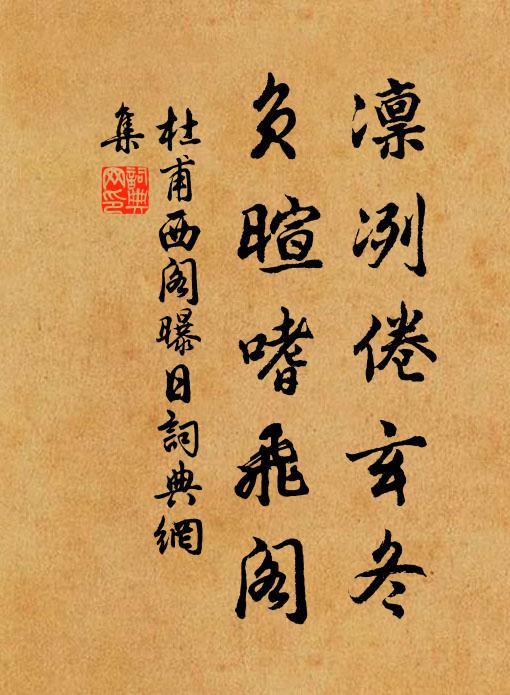 凛冽倦玄冬
负暄嗜飛阁
杜甫西阁曝日詞典網
集
詞典网印